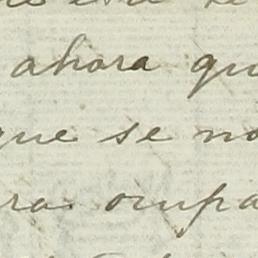 ahora qu
que se no
ra ocupa